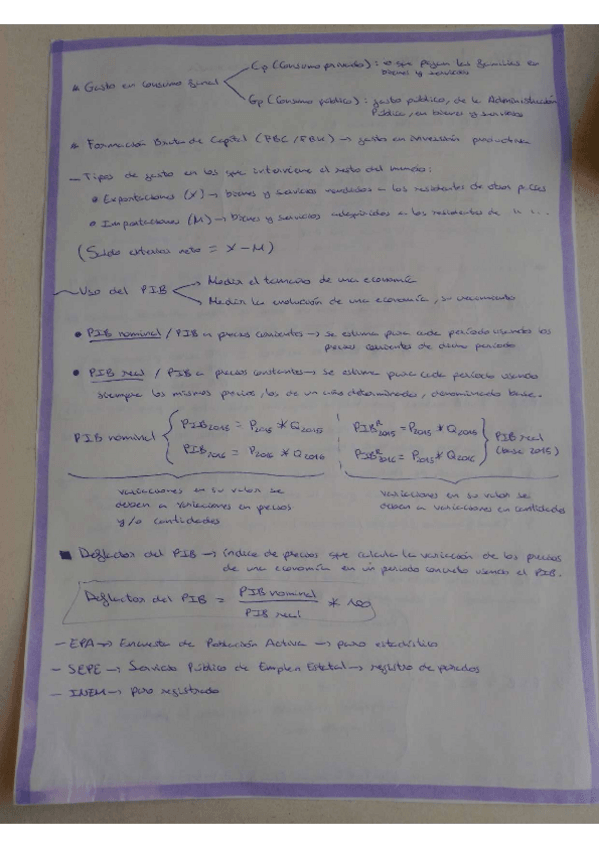 Cp (Consumo privado): o que pagan las familias en
bienes y servicios
* Gasto en consumo final
Gp (Consumo público): gasto público, de la Administración
Pública, en bienes y servicios
* Formación Bruta de Capital (FBC/FBK) → gasto en inversión productiva
- Tipos de gasto en los que interviene el resto del mundo:
• Exportaciones (X) → bienes y servicios vendidos a los residentes de otros países
• Importaciones (M) → bienes y servicios adquiridos a los residentes de " " ...
(Saldo exterior neto = X - M)
Uso del PIB
→ Medir el tamaño de una economía
→ Medir la evolución de una economía, su crecimiento
• PIB nominal / PIB a precios corrientes → se estima para cada período usando los
precios corrientes de dicho período
• PIB real / PIB a precios constantes → se estima para cada período usando
siempre los mismos precios, los de un año determinado, denominado base.
PIB nominal { PIB2015 = P2015 * Q2015
PIB2016 = P2016 * Q2016
PIBR2015 = P2015 * Q2015
PIBR2016 = P2015 * Q2016 } PIB real
(base 2015)
variaciones en su valor se
deben a variaciones en precios
y/o cantidades
variaciones en su valor se
deben a variaciones en cantidades
■ Deflactor del PIB → índice de precios que calcula la variación de los precios
de una economía en un periodo concreto usando el PIB.
Deflactor del PIB = PIB nominal / PIB real * 100
- EPA → Encuesta de Población Activa → paro estadístico
- SEPE → Servicio Público de Empleo Estatal → registro de parados
- INEM → paro registrado